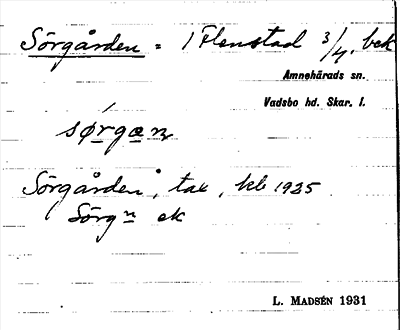 Sörgården = 1 Flenstad 3/4. bek
Amnehärads sn.
Vadsbo hd. Skar. l.
sørgan
Sörgården, tax, kb 1925
Sörgn ek
L. MADSÉN 1931